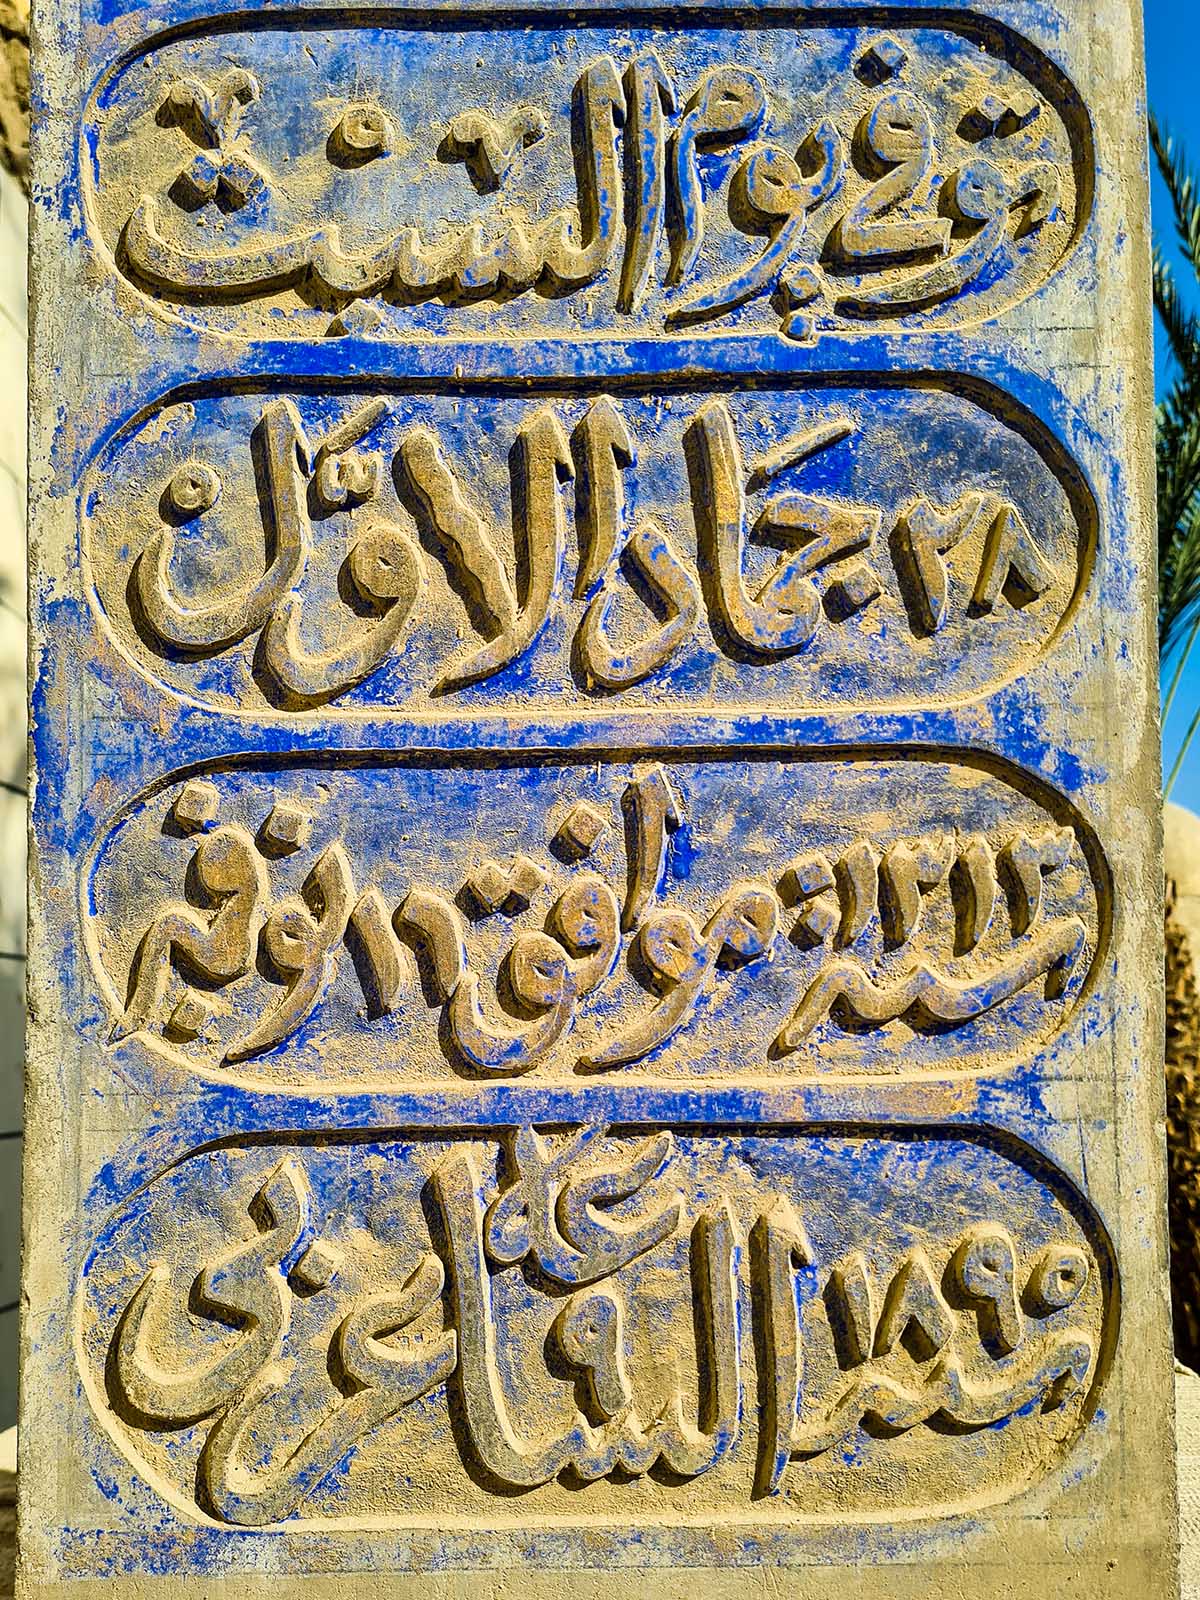 توفى يوم السبت
٢٨ جماد الاوّل
سنة ١٣١٣ موافق ١٦ نوفمبر
سنة ١٨٩٥ الساعة ٩ عربى